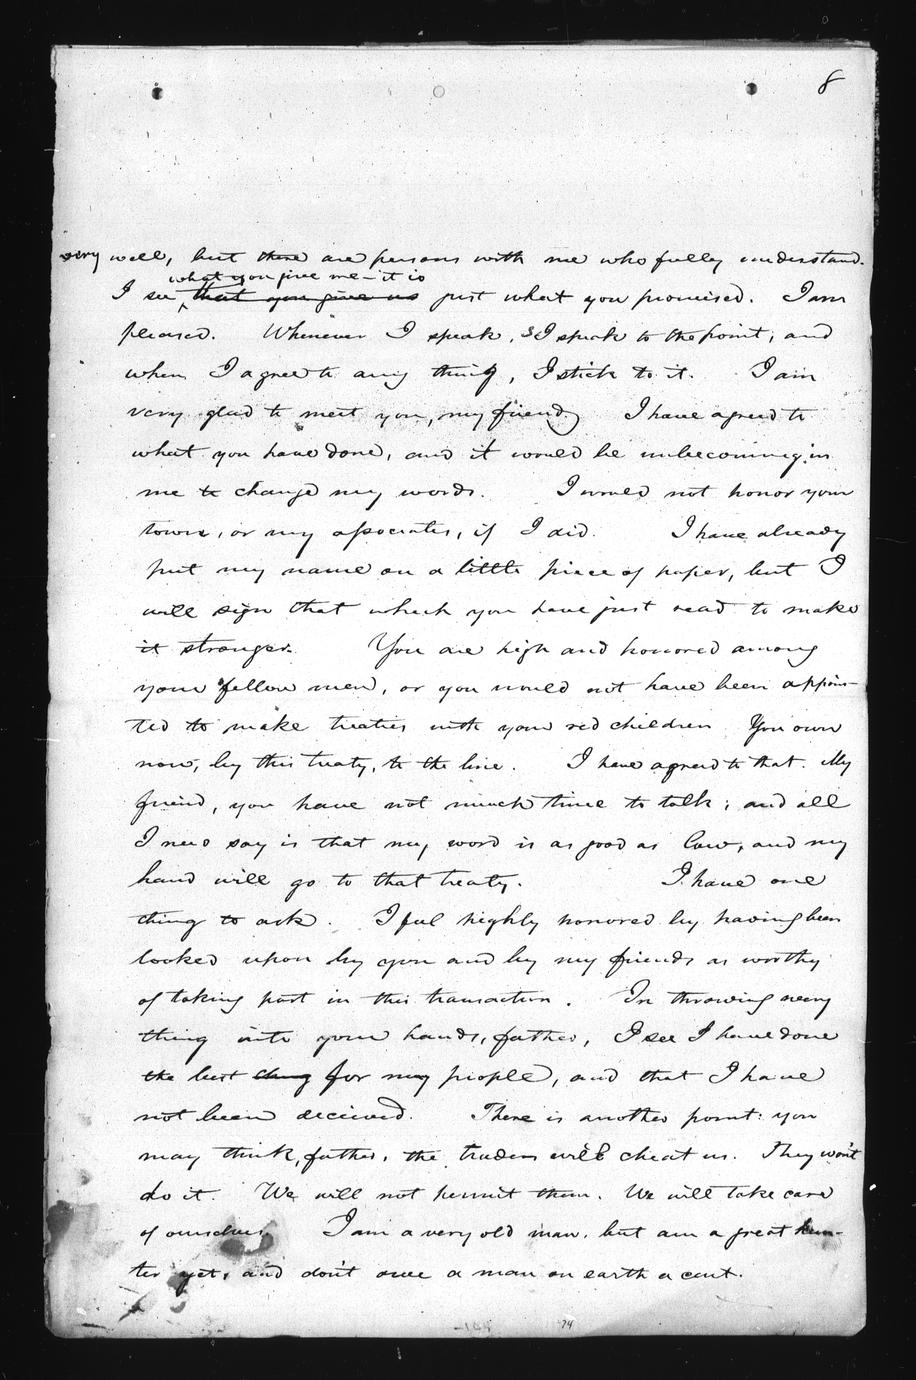 8
very well, but there are persons with me who fully understand.
what you give me – it is
I see that you give us just what you promised. I am
pleased. Whenever I speak, I speak to the point, and
when I agree to any thing, I stick to it. I am
very glad to meet you, my friend. I have agreed to
what you have done, and it would be unbecoming in
me to change my words. I would not honor your
town, or my associates, if I did. I have already
put my name on a little piece of paper, but I
will sign that which you have just read to make
it stronger. You are high and honored among
your fellow men, or you would not have been appoin-
ted to make treaties with your red children You own
now, by this treaty, to the line. I have agreed to that. My
friend, you have not much time to talk; and all
I need say is that my word is as good as law, and my
hand will go to that treaty. I have one
thing to ask. I feel highly honored by having been
looked upon by you and by my friends as worthy
of taking part in this transaction. In throwing every
thing into your hands, father, I see I have done
the best thing for my people, and that I have
not been deceived. There is another point: you
may think, father, the traders will cheat us. They won't
do it. We will not permit them. We will take care
of ourselves. I am a very old man, but am a great hun-
ter yet, and don't owe a man on earth a cent.
74